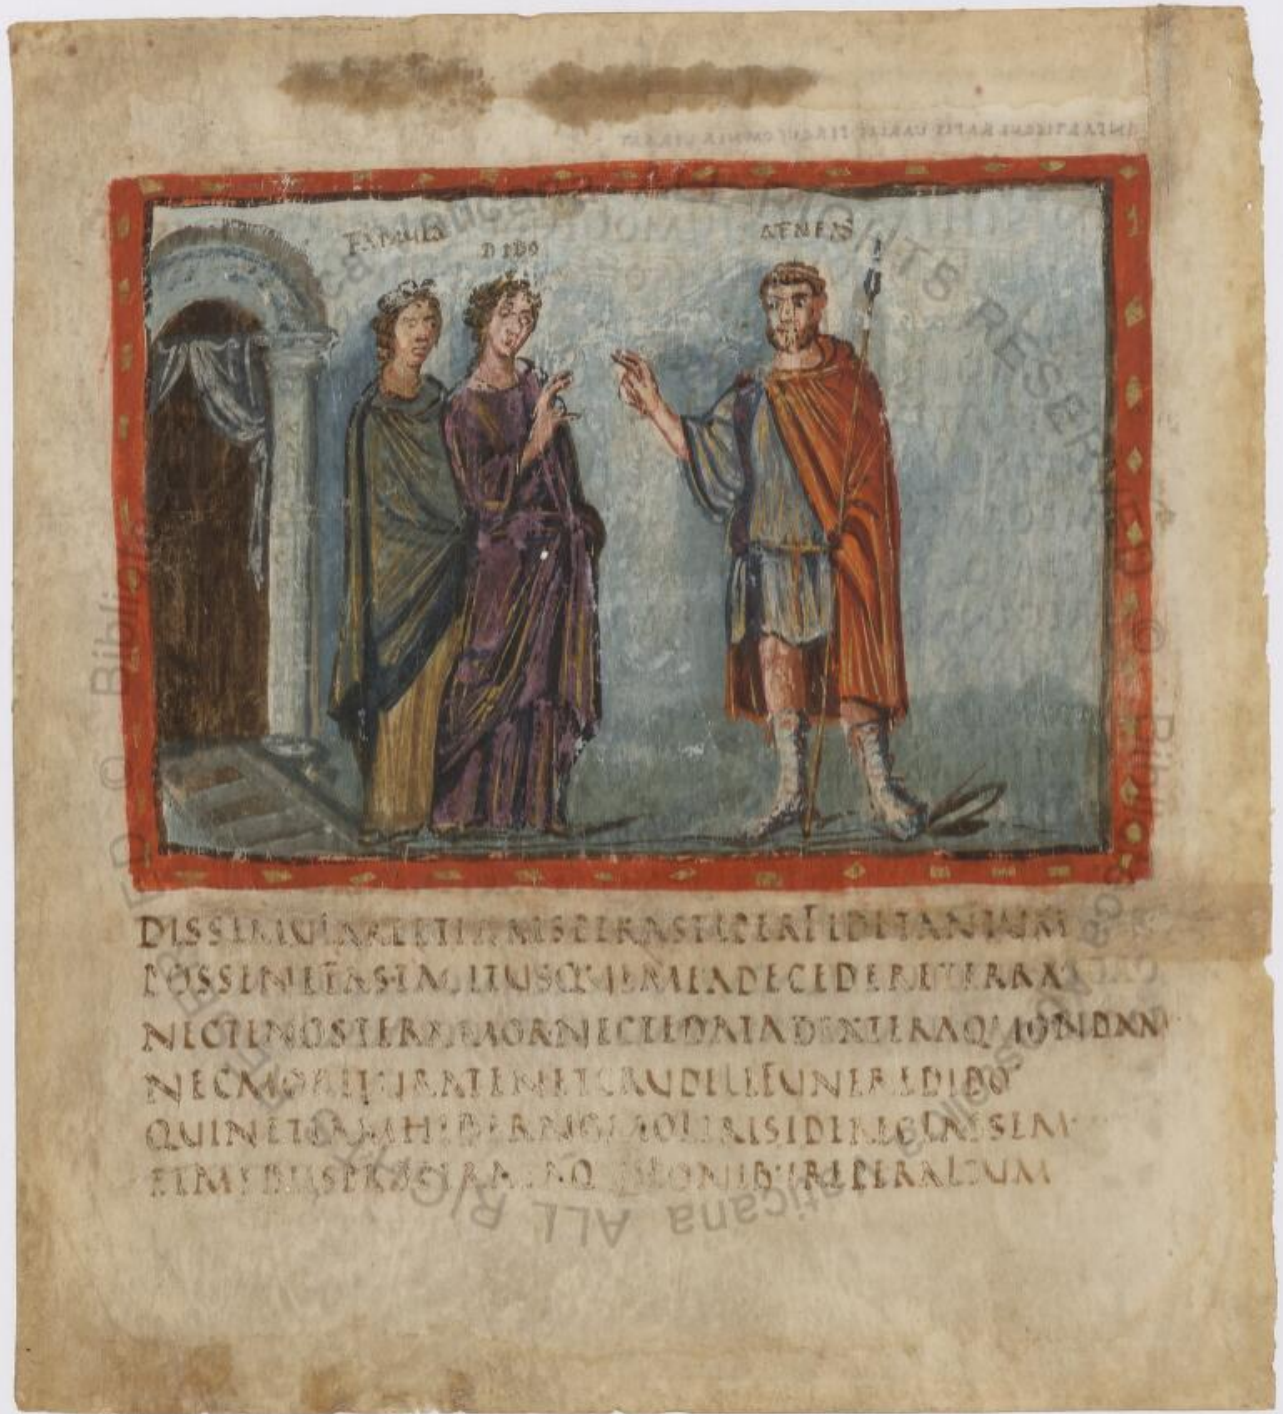 FAMULA
DIDO
AENEAS
DISSIMULAREETIAMSPERASTIPERFIDETANTUM
POSSENEFASTACITUSQ·MEADECEDERETERRA
NECTENOSTERAMORNECTEDATADEXTERAQUONDAM
NECMORITURATENETCRUDELIFUNEREDIDO
QUINETIAMHIBERNOMOLIRISSIDERECLASSEM
ETMEDIISPROPERASAQUILONIB·IREPERALTUM
ALL RIGHTS RESERVED © Biblioteca Apostolica Vaticana